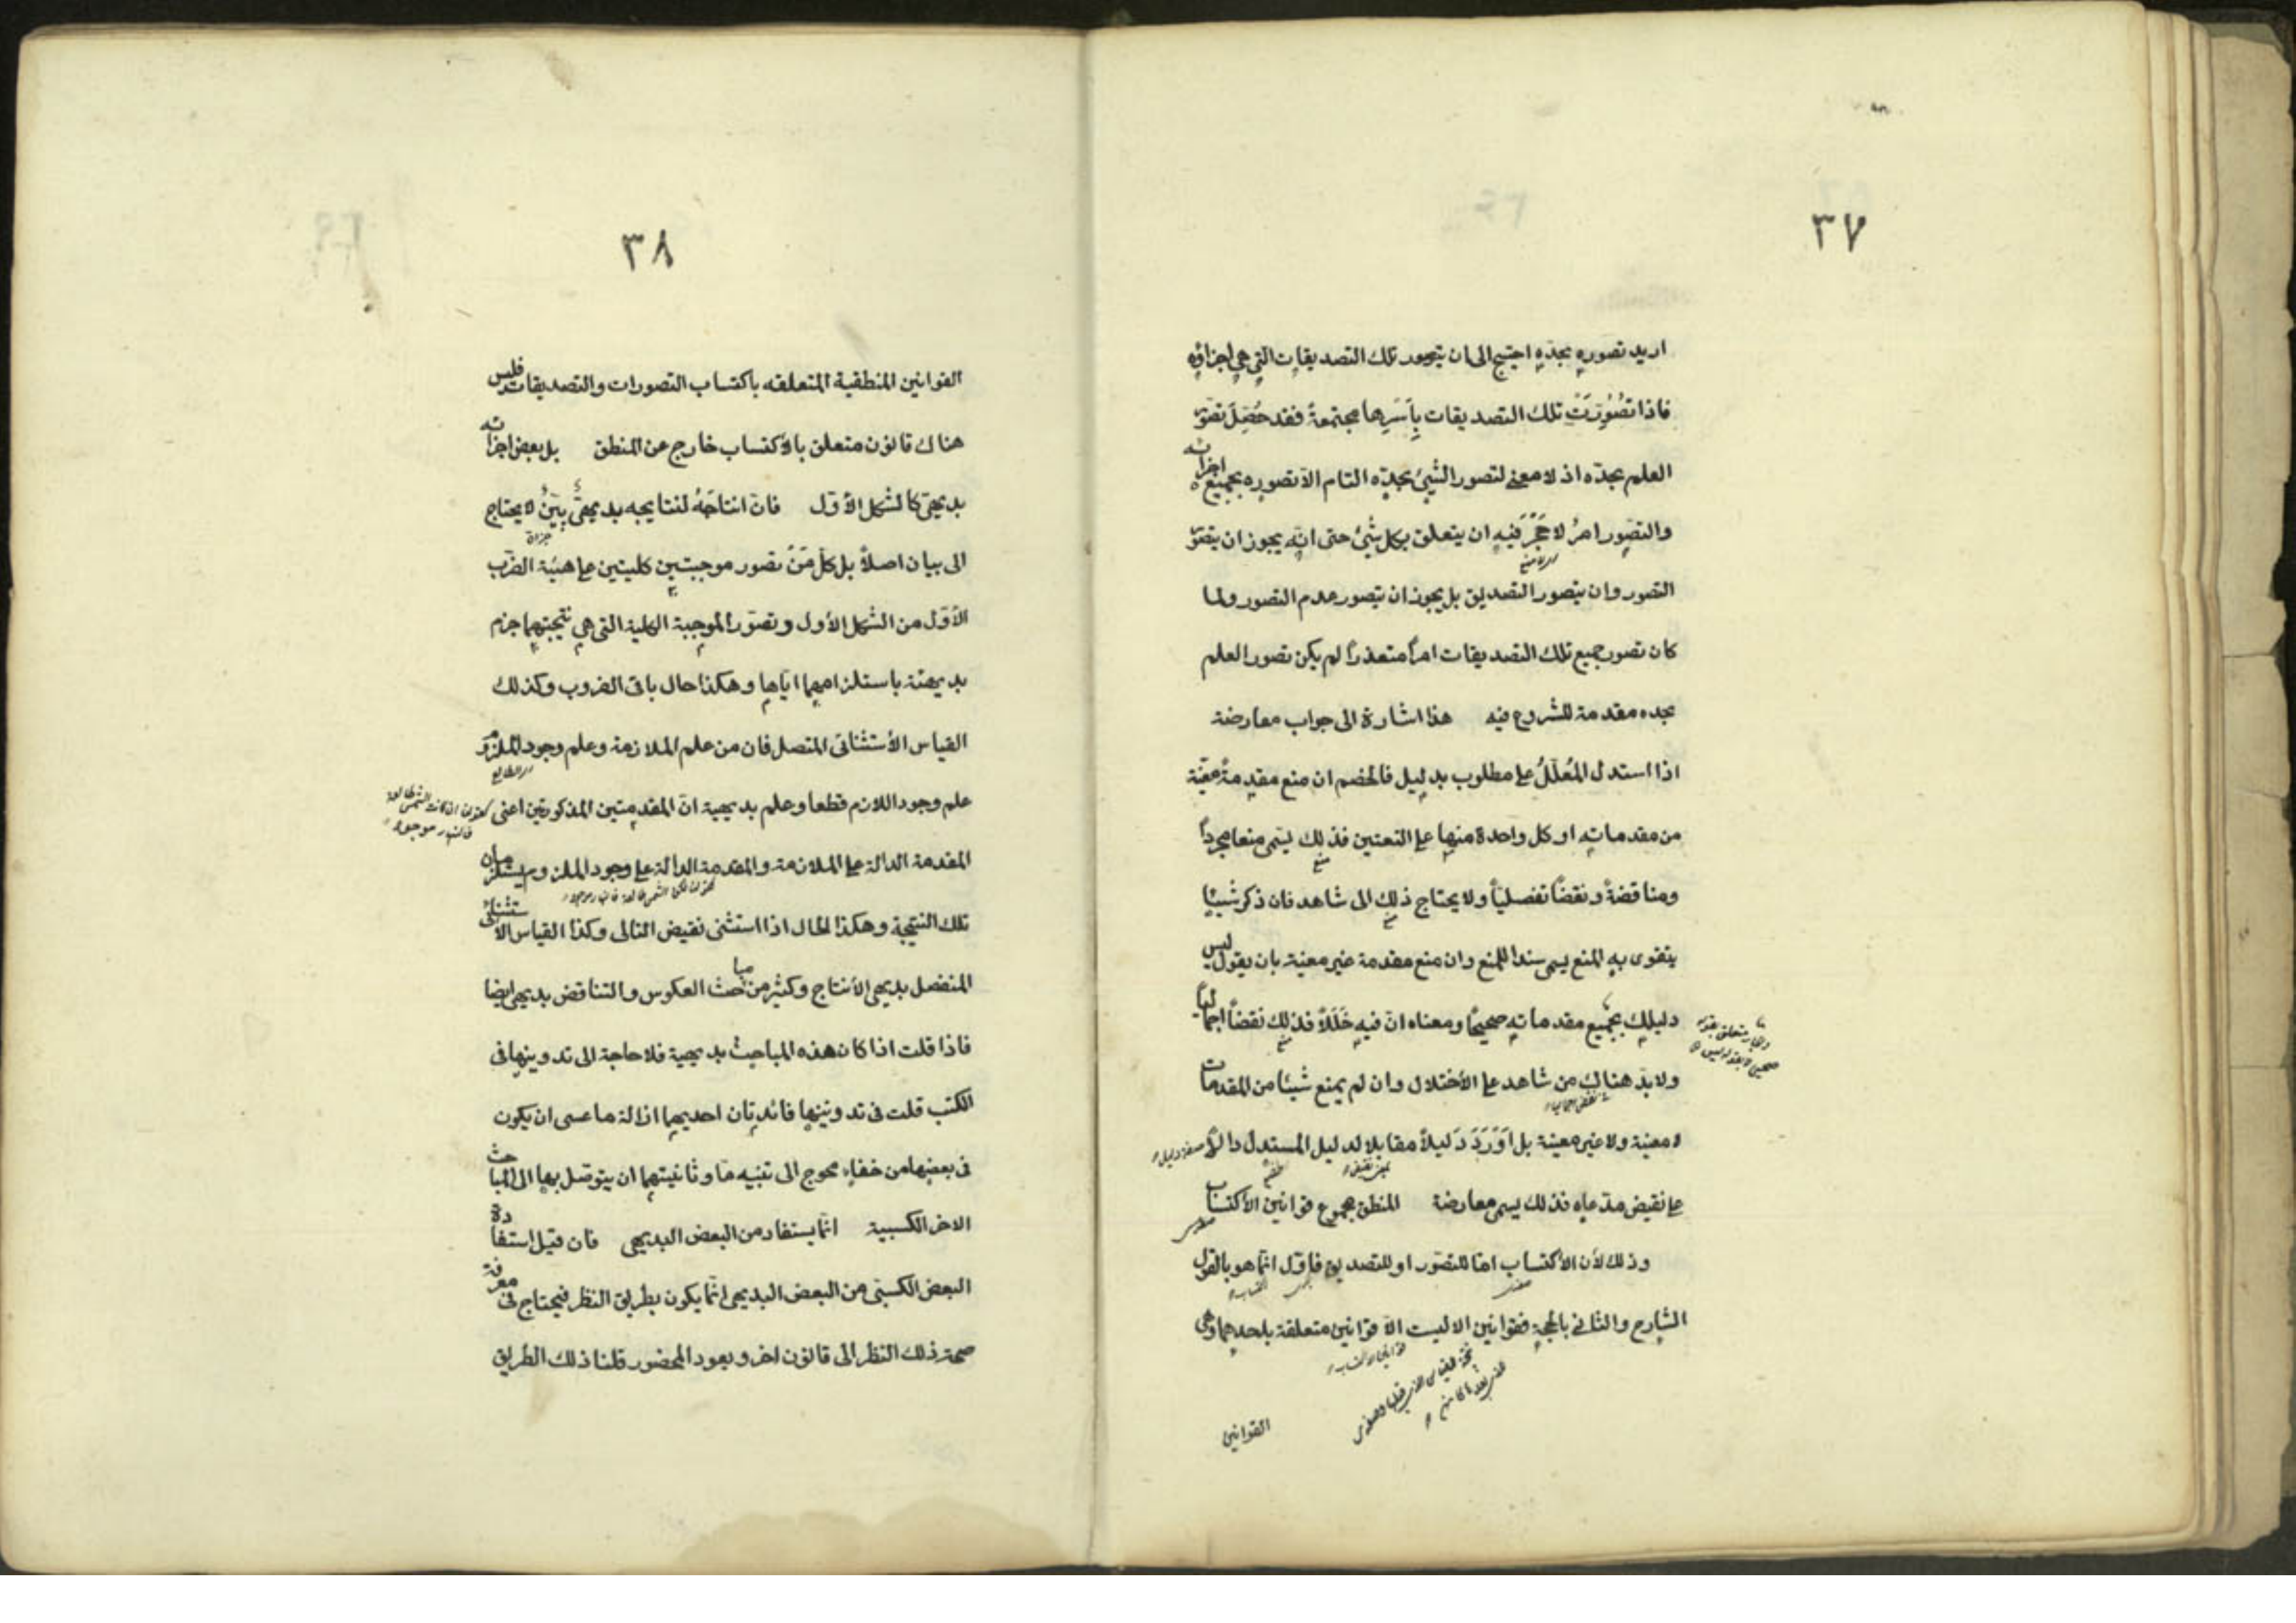 ٣٧
اريد تصوره بحده احتيج الى ان يتصور تلك التصديقات التي هي اجزاؤه
فاذا تُصُوِّرَتْ تلك التصديقات بِاَسْرِها مجتمعةً فقد حُصِّلَ تصوّر
العلم بحدّه اذ لا معنى لتصور الشيئ بحدّه التام الا تصوره بجميع اجزائه
والتصوّر امرٌ لا حَجْرَ فيه ان يتعلق بكل شيئ حتى انّه يجوز ان يتصوّر
التصور وان يتصور التصديق بل يجوز ان يتصور عدم التصور ولما
كان تصور جميع تلك التصديقات امراً متعذراً لم يكن تصور العلم
بحده مقدمة للشروع فيه هذا اشارة الى جواب معارضة
اذا استدل المُعَلِّلُ على مطلوب بدليل فالخصم ان منع مقدمةً معيّنة
من مقدماته او كل واحدة منها على التعيين فذلك يسمى منعا مجرداً
ومناقضةً ونقضاً تفصيلياً ولا يحتاج ذلك الى شاهد فان ذكر شيئا
يتقوى به المنع يسمى سندا للمنع وان منع مقدمة غير معينة بان يقول ليس
دليلك بجميع مقدماته صحيحاً ومعناه انّ فيه خَلَلاً فذلك نقضاً اجمالياً
ولا بدّ هناك من شاهد على الأختلال وان لم يمنع شيئا من المقدمات
لا معينة ولا غير معينة بل اَوْرَدَ دَليلاً مقابلا لدليل المستدل دالاً
على نقيض مدعاه فذلك يسمى معارضة المنطق مجموع قوانين الأكتساب
وذلك لأن الأكتساب امّا للتصوّر او للتصديق فاوّل انّما هو بالقول
الشارح والثاني بالحجة فقوانين الا ليست الا قوانين متعلقة باحدهما وهى
القوانين
٣٨
القوانين المنطقية المتعلقه باكتساب التصورات والتصديقات فليس
هناك قانون متعلق بالأكتساب خارج عن المنطق بل بعض اجزائه
بديهيّ كالشكل الأوّل فانّ انتاجَهُ لنتايجه بديهيٌّ بيّنٌ لا يحتاج
الى بيان اصلاً بل كلّ مَنْ تصور موجبتين كليتين على هيئة الضرب
الأوّل من الشكل الأول وتصوّر الموجبة الكلية التي هي نتيجتهما جزم
بديهتة باستلزامهما اياها وهكذا حال باقى الضروب وكذلك
القياس الأستثنائى المتصل فان من علم الملازمة وعلم وجود الملزوم
علم وجود اللازم قطعا وعلم بديهية انّ المقدمتين المذكورتين اعنى
المقدمة الدالة على الملازمة والمقدمة الدالة على وجود الملزوم يستلزمان
تلك النتيجة وهكذا الحال اذا استثنى نقيض التالى وكذا القياس الاستثنائى
المنفصل بديهى الأنتاج وكثير من مباحث العكوس والتناقض بديهى ايضا
فاذا قلت اذا كان هذه المباحث بديهية فلا حاجة الى تدوينها فى
الكتب قلت فى تدوينها فائدتان احديهما ازالة ما عسى ان يكون
فى بعضها من خفاء محوج الى تنبيه مّا وثانيتهما ان يتوصل بها الى المباحث
الاخر الكسبية انّما يستفاد من البعض البديهى فان قيل استفادة
البعض الكسبى من البعض البديهى انّما يكون بطريق النظر فيحتاج فى معرفة
صحة ذلك النظر الى قانون اخر ويعود المحضور قلنا ذلك الطريق